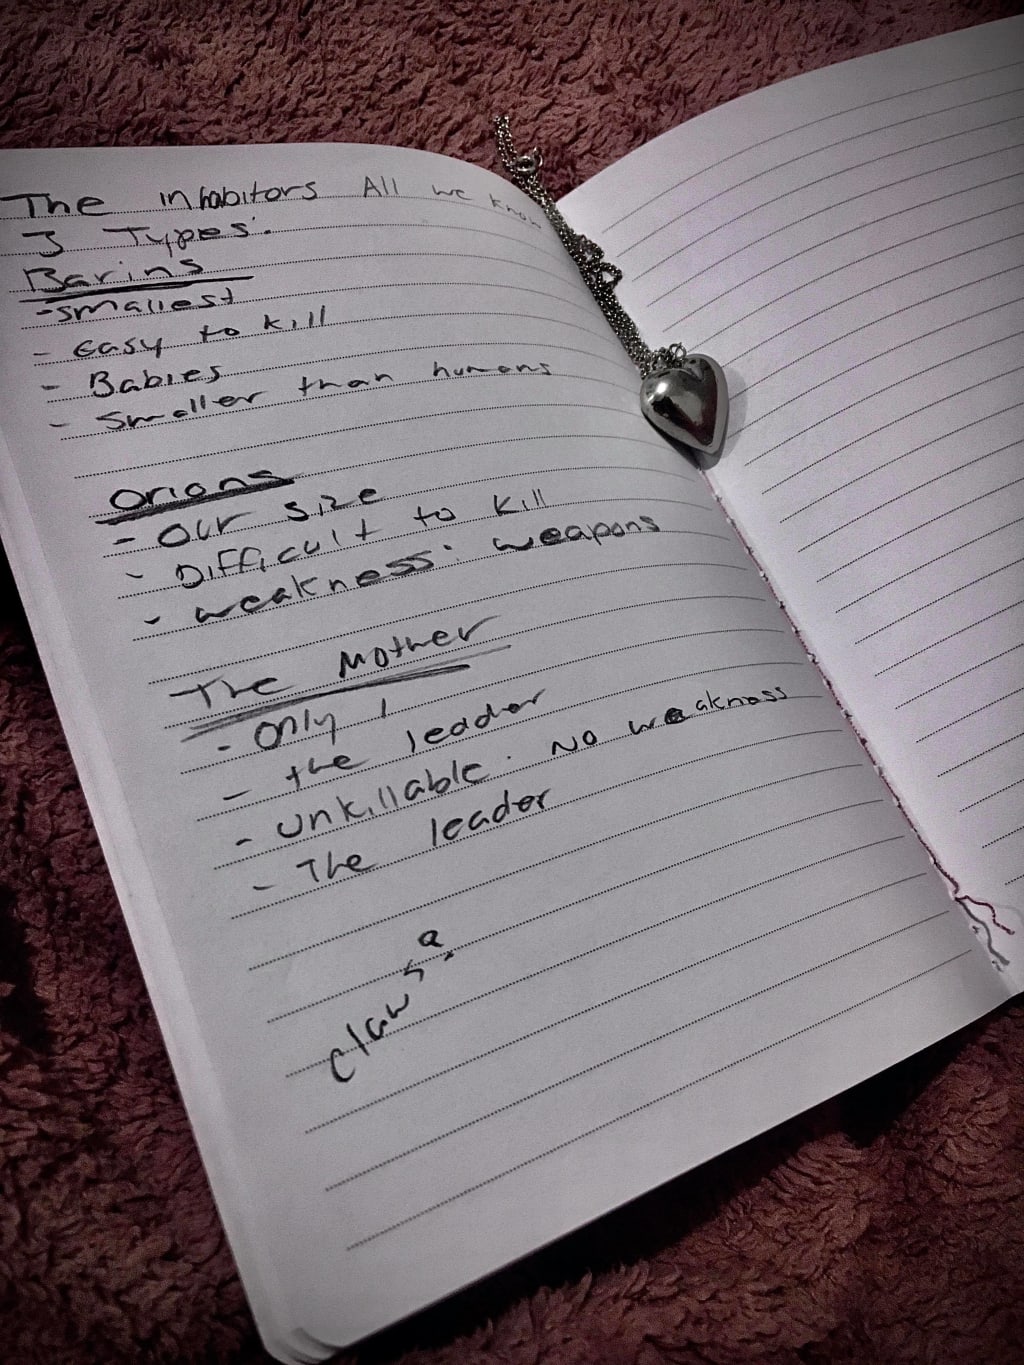 The Inhabitors All we know
3 Types:
Barins
- smallest
- easy to kill
- Babies
- smaller than humans
Orions
- our size
- Difficult to kill
- weakness: weapons
The Mother
- only 1
- the leader
- unkillable. No weakness
- The leader
claws?